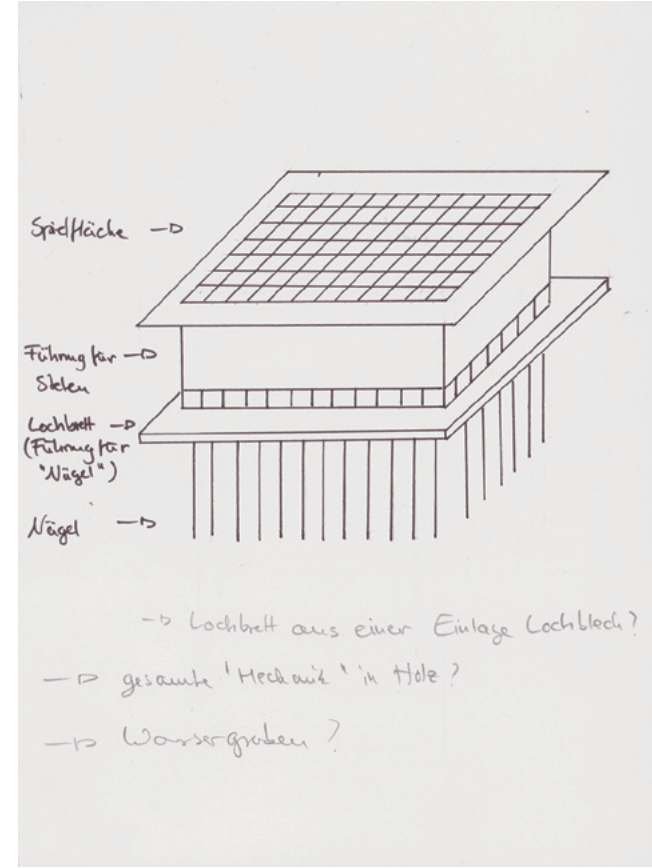 Spielfläche
Führung für
Stelen
Lochbrett
(Führung für
"Nägel")
Nägel
Lochbrett aus einer Einlage Lochblech?
gesamte 'Mechanik' in Holz?
Wassergraben?